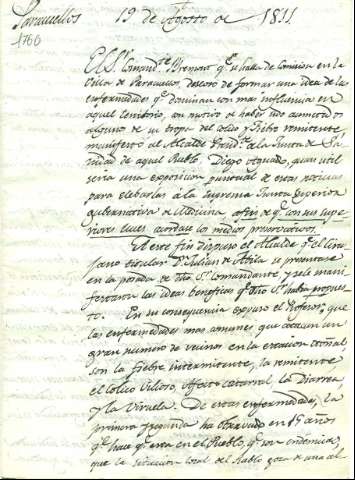 Paracuellos 19 de Agosto de 1811
1760
El Sr. Comandte. Bremont qe. se halla de comision en la
Villa de Paracuellos, deseoso de formar una idea de las
enfermedades qe. dominan con mas influencia en
aquel territorio, con motivo de haber sido acometidos
algunos de su tropa del colico y fiebre remitente
manifesto al Alcalde Presidte. de la Junta de Sa-
nidad de aquel Pueblo, Diego, quan util
seria una exposicion puntual de estas noticias
para elebarlas á la Suprema Junta Superior
gubernativa de Medicina á fin de qe. con sus supe-
riores luces acordase los medios preservativos.
A este fin dispuso el Alcalde qe. el Ciru-
jano titular Dn. Julian de Avila se presentase
en la posada de dho. Sr. Comandante, y se le mani-
festaron las ideas beneficas qe. dho. Sr. habia propues-
to. En su consequencia expuso el Profesor, que
las enfermedades mas comunes que atacan un
gran numero de vecinos en la estacion otoñal
son la fiebre intermitente, la remitente
el colico vilioso, afecto catarral, la Diarrea,
y la Viruela. De estas enfermedades, la
primera y segunda ha observado en 19 años
qe. hace qe. esta en el Pueblo, qe. son endemicas,
que la situacion local del Pueblo goza de una al